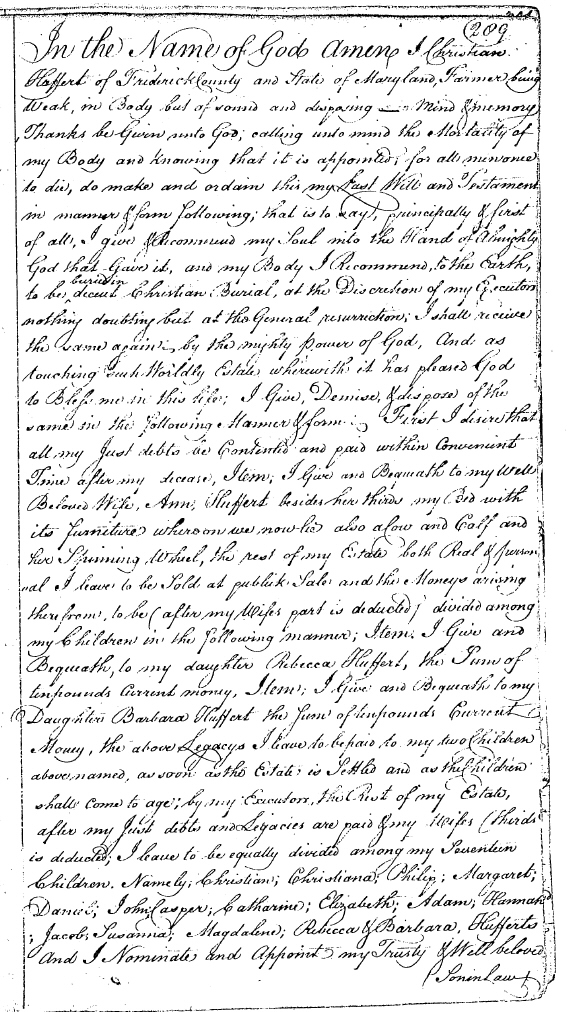 289
In the Name of God Amen I Christian
Huffert of Fredrick County and State of Maryland, Farmer being
Weak, in Body but of sound and disposing Mind & memory
Thanks be Given unto God; calling unto mind the Mortality of
my Body and knowing that it is appointed, for all men once
to die, do make and ordain this my Last Will and Testament
in manner & form following; that is to say, principally & first
of all, I give & Recommend my Soul into the Hand of Almighty
God that Gave it, and my Body I Recommend, to the Earth,
to be buried in decent Christian Burial, at the Discretion of my Executors
nothing doubting but at the General resurrection; I shall receive
the same again by the mighty power of God, And as
touching such Worldly Estate wherewith it has pleased God
to Bless me in this life; I Give, Demise, & dispose of the
same in the following Manner & form. First I desire that
all my Just debts be Contented and paid within Convenient
Time after my decease, Item; I Give and Bequeath to my Well
Beloved Wife, Ann, Huffert besides her thirds my Bed with
its furniture whereon we now lie also a Cow and Calf and
her Spinning Wheel, the rest of my Estate both Real & person
al I leave to be Sold at publick Sale and the Moneys arising
therefrom, to be (after my Wifes part is deducted) divided among
my Children in the following manner; Item. I Give and
Bequeath, to my daughter Rebecca Huffert, the Sum of
ten pounds Current money, Item; I Give and Bequeath to my
Daughter Barbara Huffert the Sum of ten pounds Current
Money, the above Legacys I leave to be paid to my two Children
above named, as soon as the Estate is Settled and as the Children
shall come to age; by my Executors, the Rest of my Estate,
after my Just debts and Legacies are paid & my Wifes (thirds
is deducted; I leave to be equally divided among my Seventein
Children, Namely; Christian; Christiana; Philip; Margaret;
Daniel; John Casper; Catharine; Elizabeth; Adam; Hannah
; Jacob; Susanna; Magdalene; Rebecca & Barbara, Hufferts
And I Nominate and Appoint my Trusty & Well beloved
Son in Law